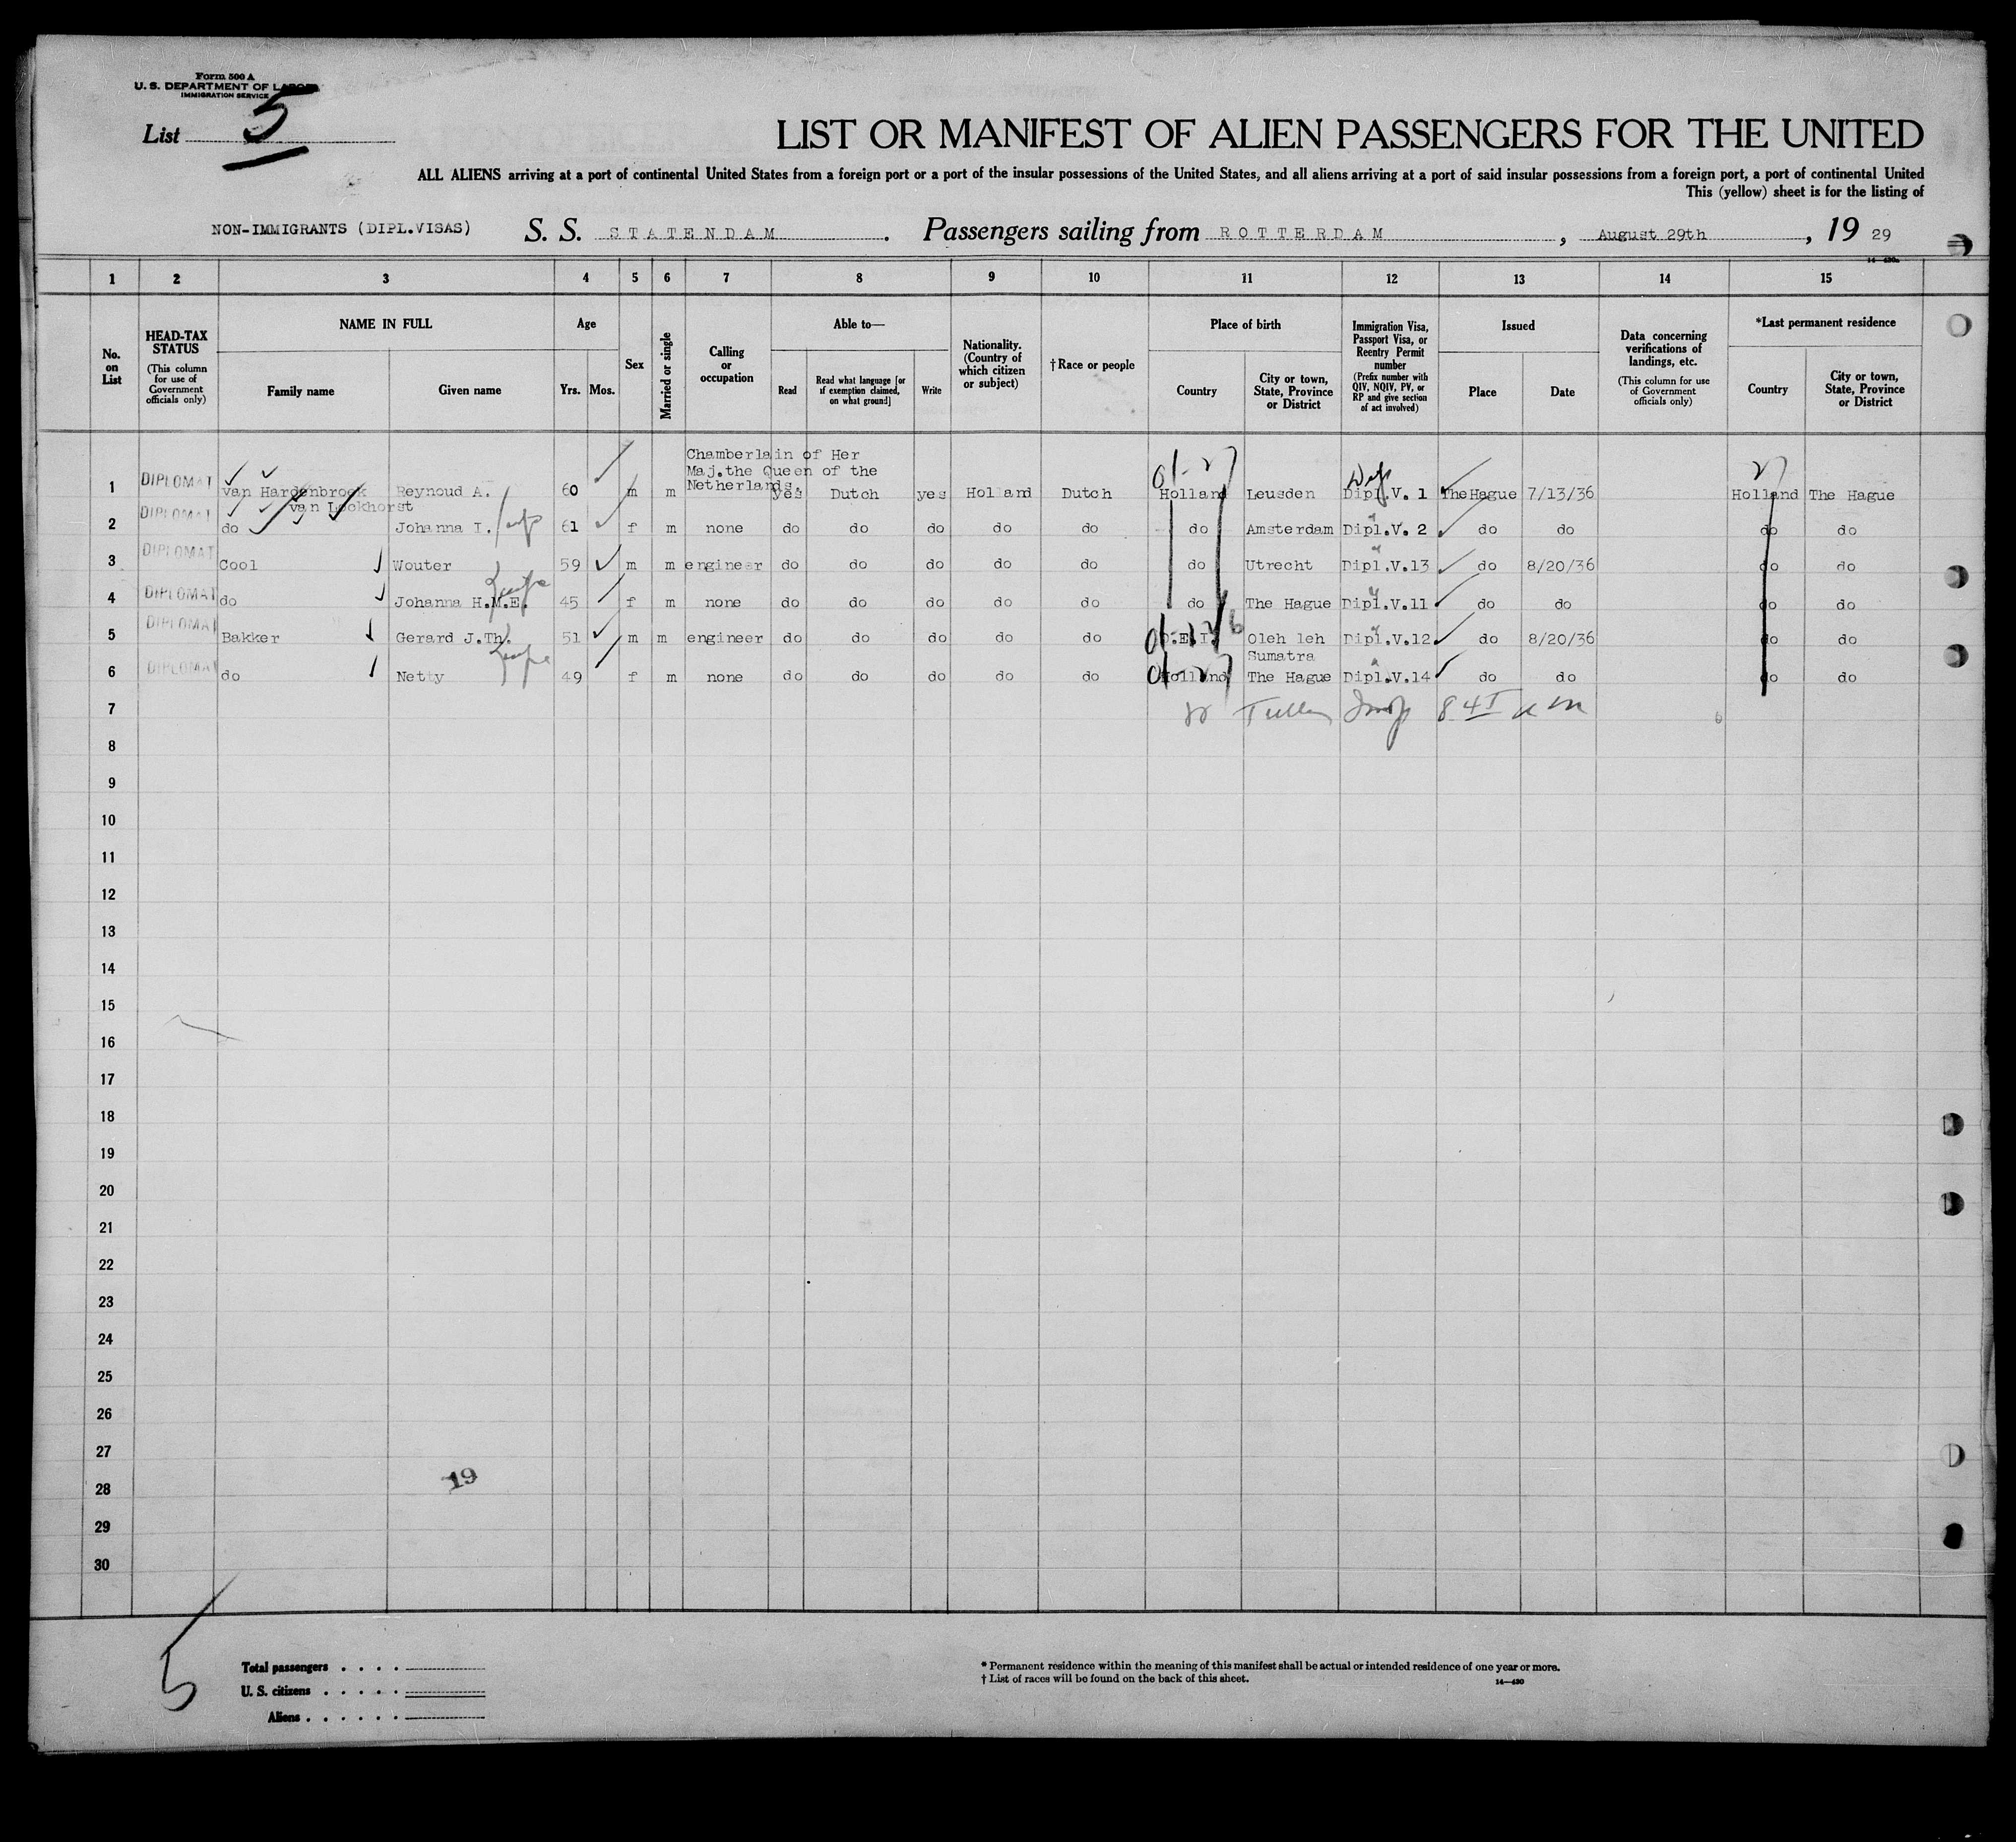 Form 500 A
U. S. DEPARTMENT OF LABOR
IMMIGRATION SERVICE
List 5
LIST OR MANIFEST OF ALIEN PASSENGERS FOR THE UNITED
ALL ALIENS arriving at a port of continental United States from a foreign port or a port of the insular possessions of the United States, and all aliens arriving at a port of said insular possessions from a foreign port, a port of continental United
This (yellow) sheet is for the listing of
NON-IMMIGRANTS (DIPL.VISAS) S. S. STATENDAM. Passengers sailing from ROTTERDAM, August 29th, 19 29
14—430a
1 2 3 4 5 6 7 8 9 10 11 12 13 14 15
No. on List
HEAD-TAX STATUS
(This column for use of Government officials only)
NAME IN FULL
Family name
Given name
Age
Yrs. Mos.
Sex
Married or single
Calling or occupation
Able to—
Read
Read what language [or if exemption claimed, on what ground]
Write
Nationality. (Country of which citizen or subject)
†Race or people
Place of birth
Country
City or town, State, Province or District
Immigration Visa, Passport Visa, or Reentry Permit number
(Prefix number with QIV, NQIV, PV, or RP and give section of act involved)
Issued
Place
Date
Data concerning verifications of landings, etc.
(This column for use of Government officials only)
*Last permanent residence
Country
City or town, State, Province or District
Chamberlain of Her
Maj.the Queen of the
Netherlands.
1 DIPLOMAT van Hardenbroek Reynoud A. 60 m m yes Dutch yes Holland Dutch Holland Leusden Dipl.V. 1 The Hague 7/13/36 Holland The Hague
van Lockhorst
2 DIPLOMAT do Johanna I. 61 f m none do do do do do do Amsterdam Dipl.V. 2 do do do do
3 DIPLOMAT Cool Wouter 59 m m engineer do do do do do do Utrecht Dipl.V.13 do 8/20/36 do do
4 DIPLOMAT do Johanna H.M.E. 45 f m none do do do do do do The Hague Dipl.V.11 do do do do
5 DIPLOMAT Bakker Gerard J.Th. 51 m m engineer do do do do do D.E.I. Oleh leh Dipl.V.12 do 8/20/36 do do
Sumatra
6 DIPLOMAT do Netty 49 f m none do do do do do Holland The Hague Dipl.V.14 do do do do
7
8
9
10
11
12
13
14
15
16
17
18
19
20
21
22
23
24
25
26
27
19
28
29
30
5
Total passengers
U. S. citizens
Aliens
* Permanent residence within the meaning of this manifest shall be actual or intended residence of one year or more.
† List of races will be found on the back of this sheet.
14—430